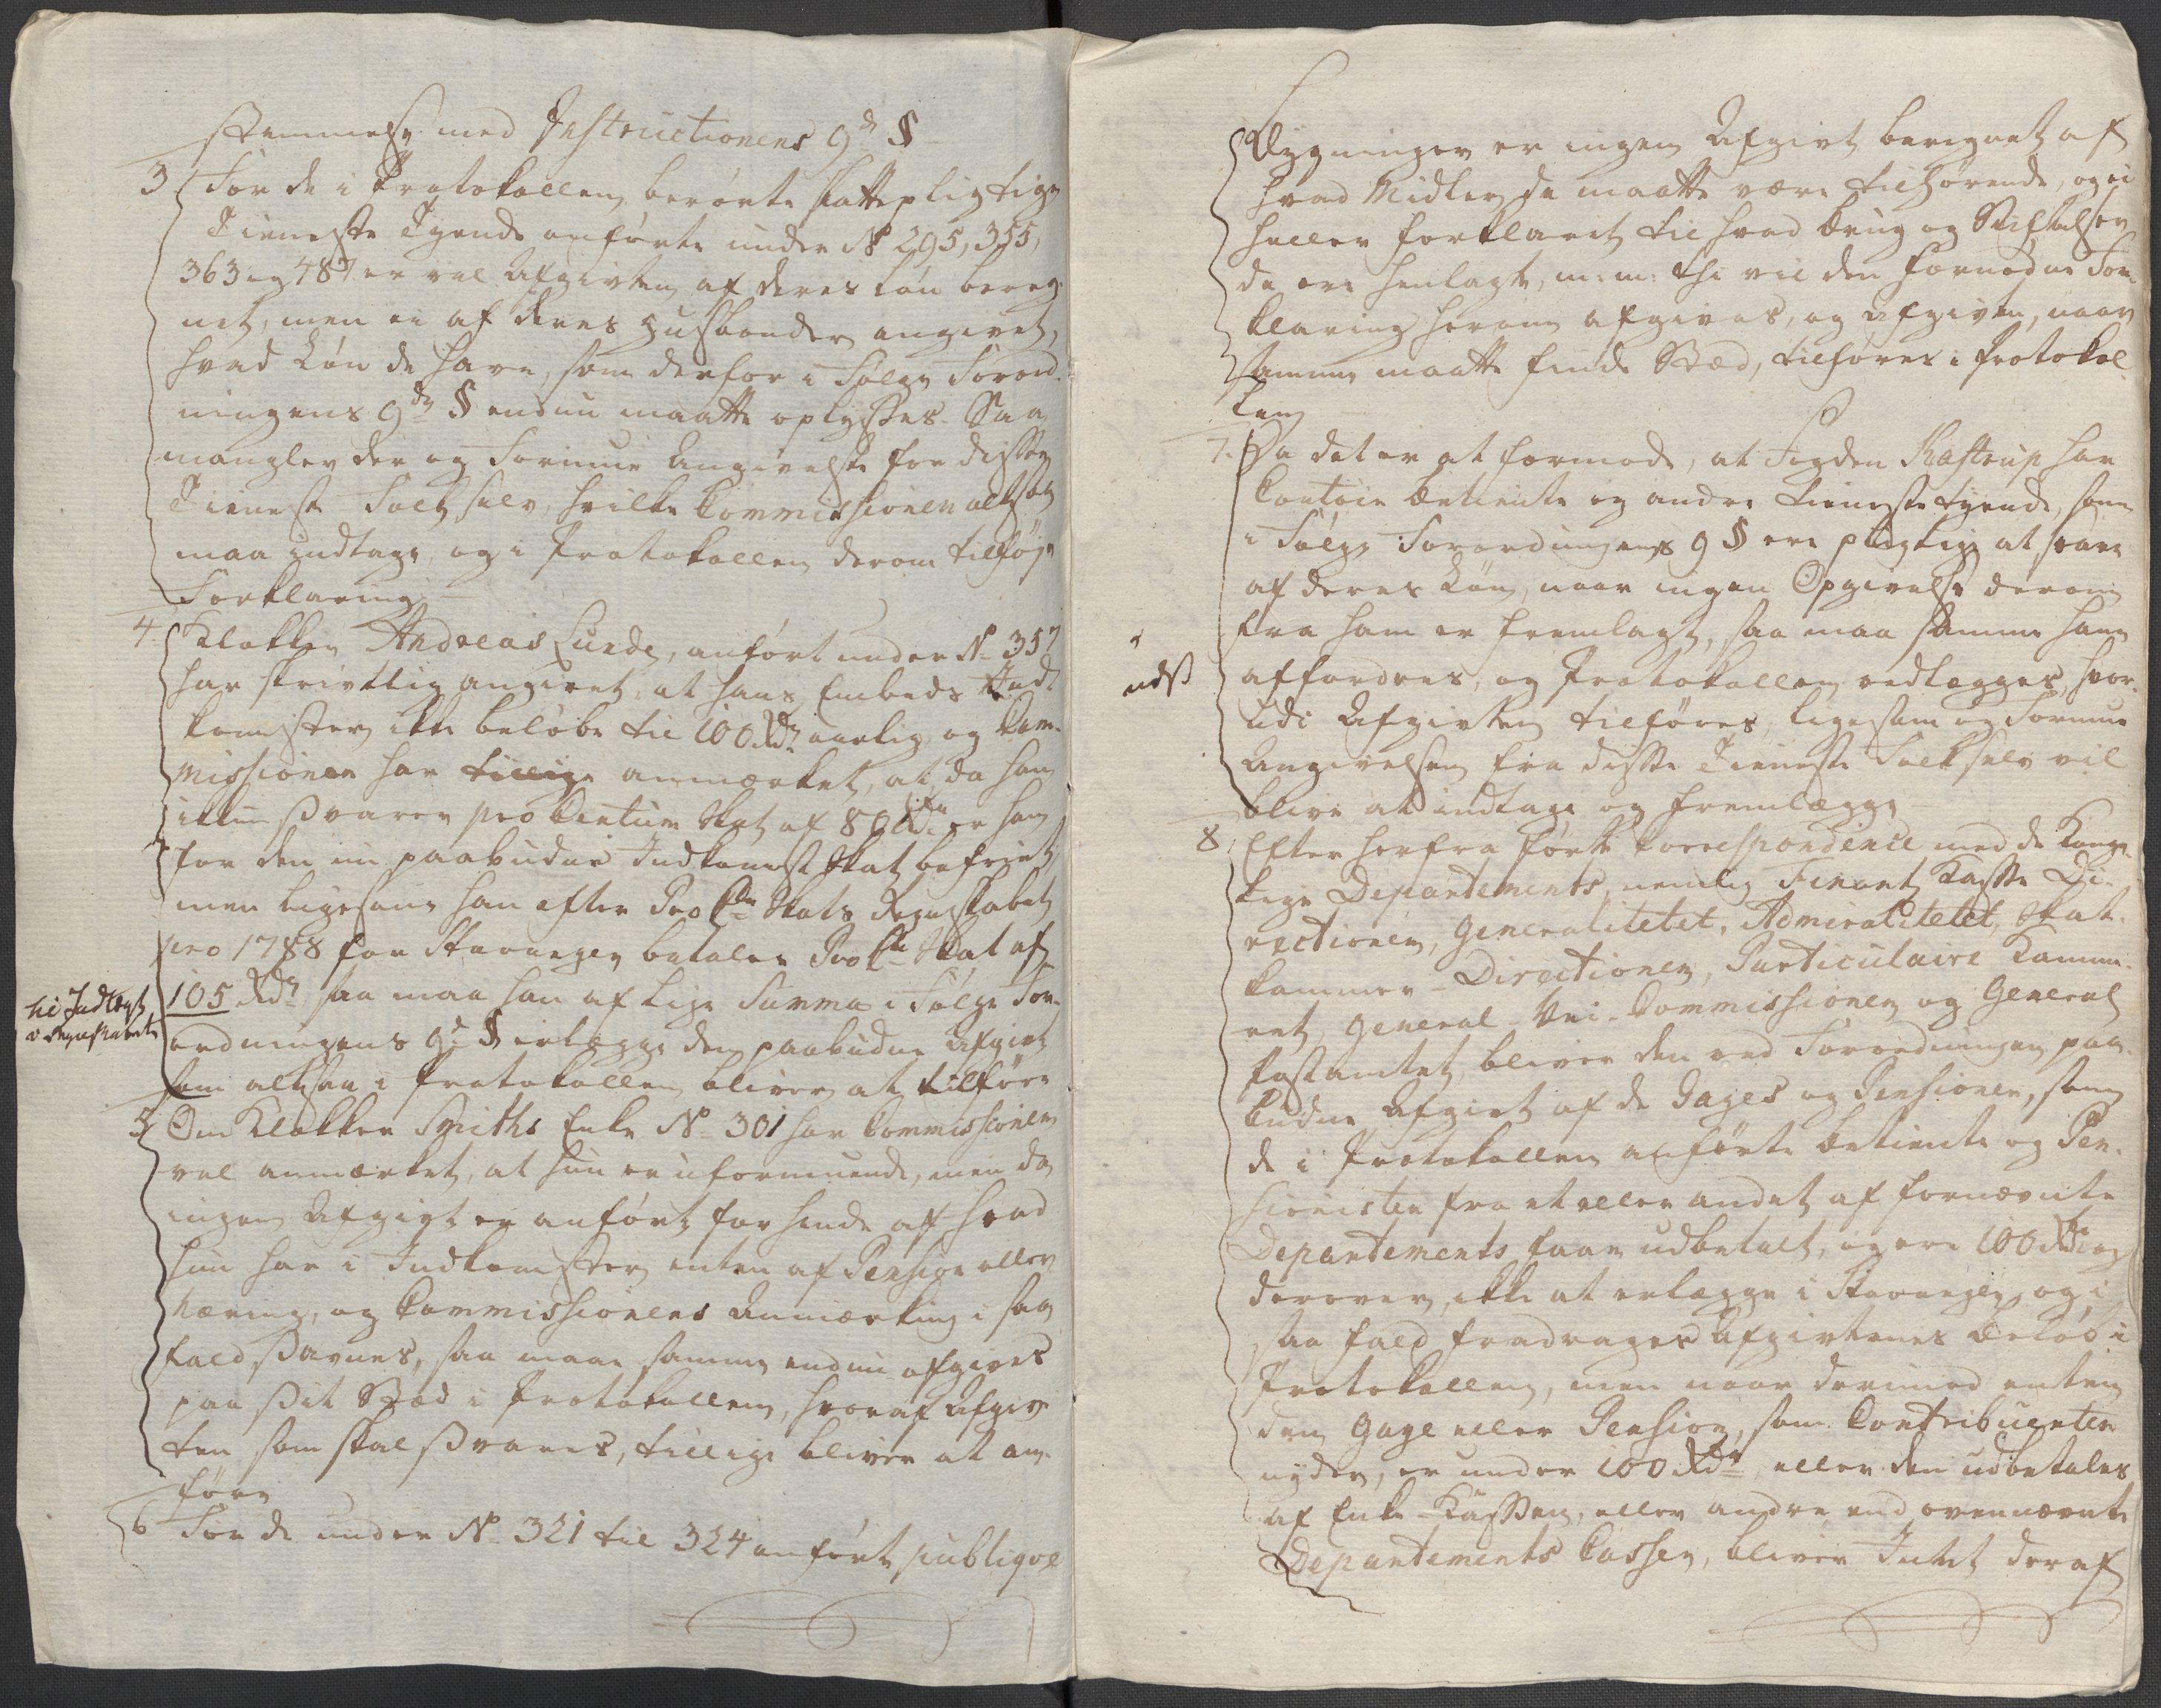 stemmelse med Instructionens 9de §
3 For de i Protokollen berørte skattepligtige
Tieneste Tyende anførte under No 295, 355,
363 og 487 er vel Afgivten af deres Løn bereg-
net, men ei af deres Husbonder angivet,
hvad Løn de have, som derfor i Følge Forord-
ningens 9de § endnu maatte oplyses. Saa
mangler der og Formue Angivelse for disse
Tieneste Folk selv, hvilke Commissionen altsaa
maa indtage og i Protokollen derom tilføje
Forklaring
4. Klokker Andreas Lunde, anført under No 357
har skrivtlig angivet, at hans Embeds Ind-
komster ikke beløbe til 100 Rdr aarlig og Com-
missionen har tillige anmærket, at, da han
ikkun svarer pro Centum Skat af 80 Rdr er han
for den nu paabudne Indkomst Skat befriet
men ligesom han efter Pro Cto Skats Regnskabet
pro 1788 for Stavanger betaler Pro Cto Skat af
105 Rdr saa maa han af lige Summa i Følge For-
ordningens 9de § erlægge den paabudne Afgivt
som altsaa i Protokollen bliver at tilføre
til Indtægt
i Regnskabet
5 Om Klokker Smiths Enke No 301 har Commissionen
vel anmærket, at hun er uformuende, men da
ingen Afgivt er anført for hende af hvad
hun har i Indkomster enten af Pension eller
Næring, og Commissionens Anmærkning i saa
fald savnes, saa maae samme endnu afgives
paa sit Sted i Protokollen, hvoraf Afgiv-
ten som skal svares, tillige bliver at an-
føre
6 For de under No 321 til 324 anført publique
Bygninger er ingen Afgivt beregnet af
hvad Midler de maatte være tilhørende, og ei
heller forklaret til hvad Brug og Stiftelser
de ere henlagte, m: m: thi vil den fornødne For-
klaring herom afgives, og Afgivten, naar
samme maatte finde Sted, tilføres i Protokol-
len
7. Da det er at formode, at Foged Kastrup har
Contoir Betiente og andre Tieneste tyende, som
i Følge Forordningens 9 § ere pligtige at svare
af deres Løn, naar ingen Opgivelse derom
fra ham er fremlagt, saa maa samme ham
affordres, og Protokollen vedlægges, hvor-
udi Afgivten tilføres, ligesom og Formue
Angivelsen fra disse Tieneste Folk selv vil
blive at indtage og fremlægge
8. Efter herfra førte Correspondence med de Konge-
lige Departements, nemlig Finants Kasse Di-
rectionen, Generalitetet, Admiralitetet, Skat-
kammer-Directionen, Particulaire Kamme-
ret, General-Vei-Commissionen og General
Postamtet, bliver den ved Forordningen paa-
budne Afgivt af de Gages og Pensioner, som
de i Protokollen anførte Betiente og Pen-
sionister fra et eller andet af fornævnte
Departements faar udbetalt, og ere 100 Rdr og
derover, ikke at erlægge i Stavanger, og i
saa fald fradrages Afgivtenes Beløb i
Protokollen, men naar derimod enten
den Gage eller Pension, som Contribuenten
nyder, er under 100 Rdr eller den udbetales
af Enke-Kassen, eller andre end ovennævnte
Departements Casser, bliver Intet deraf